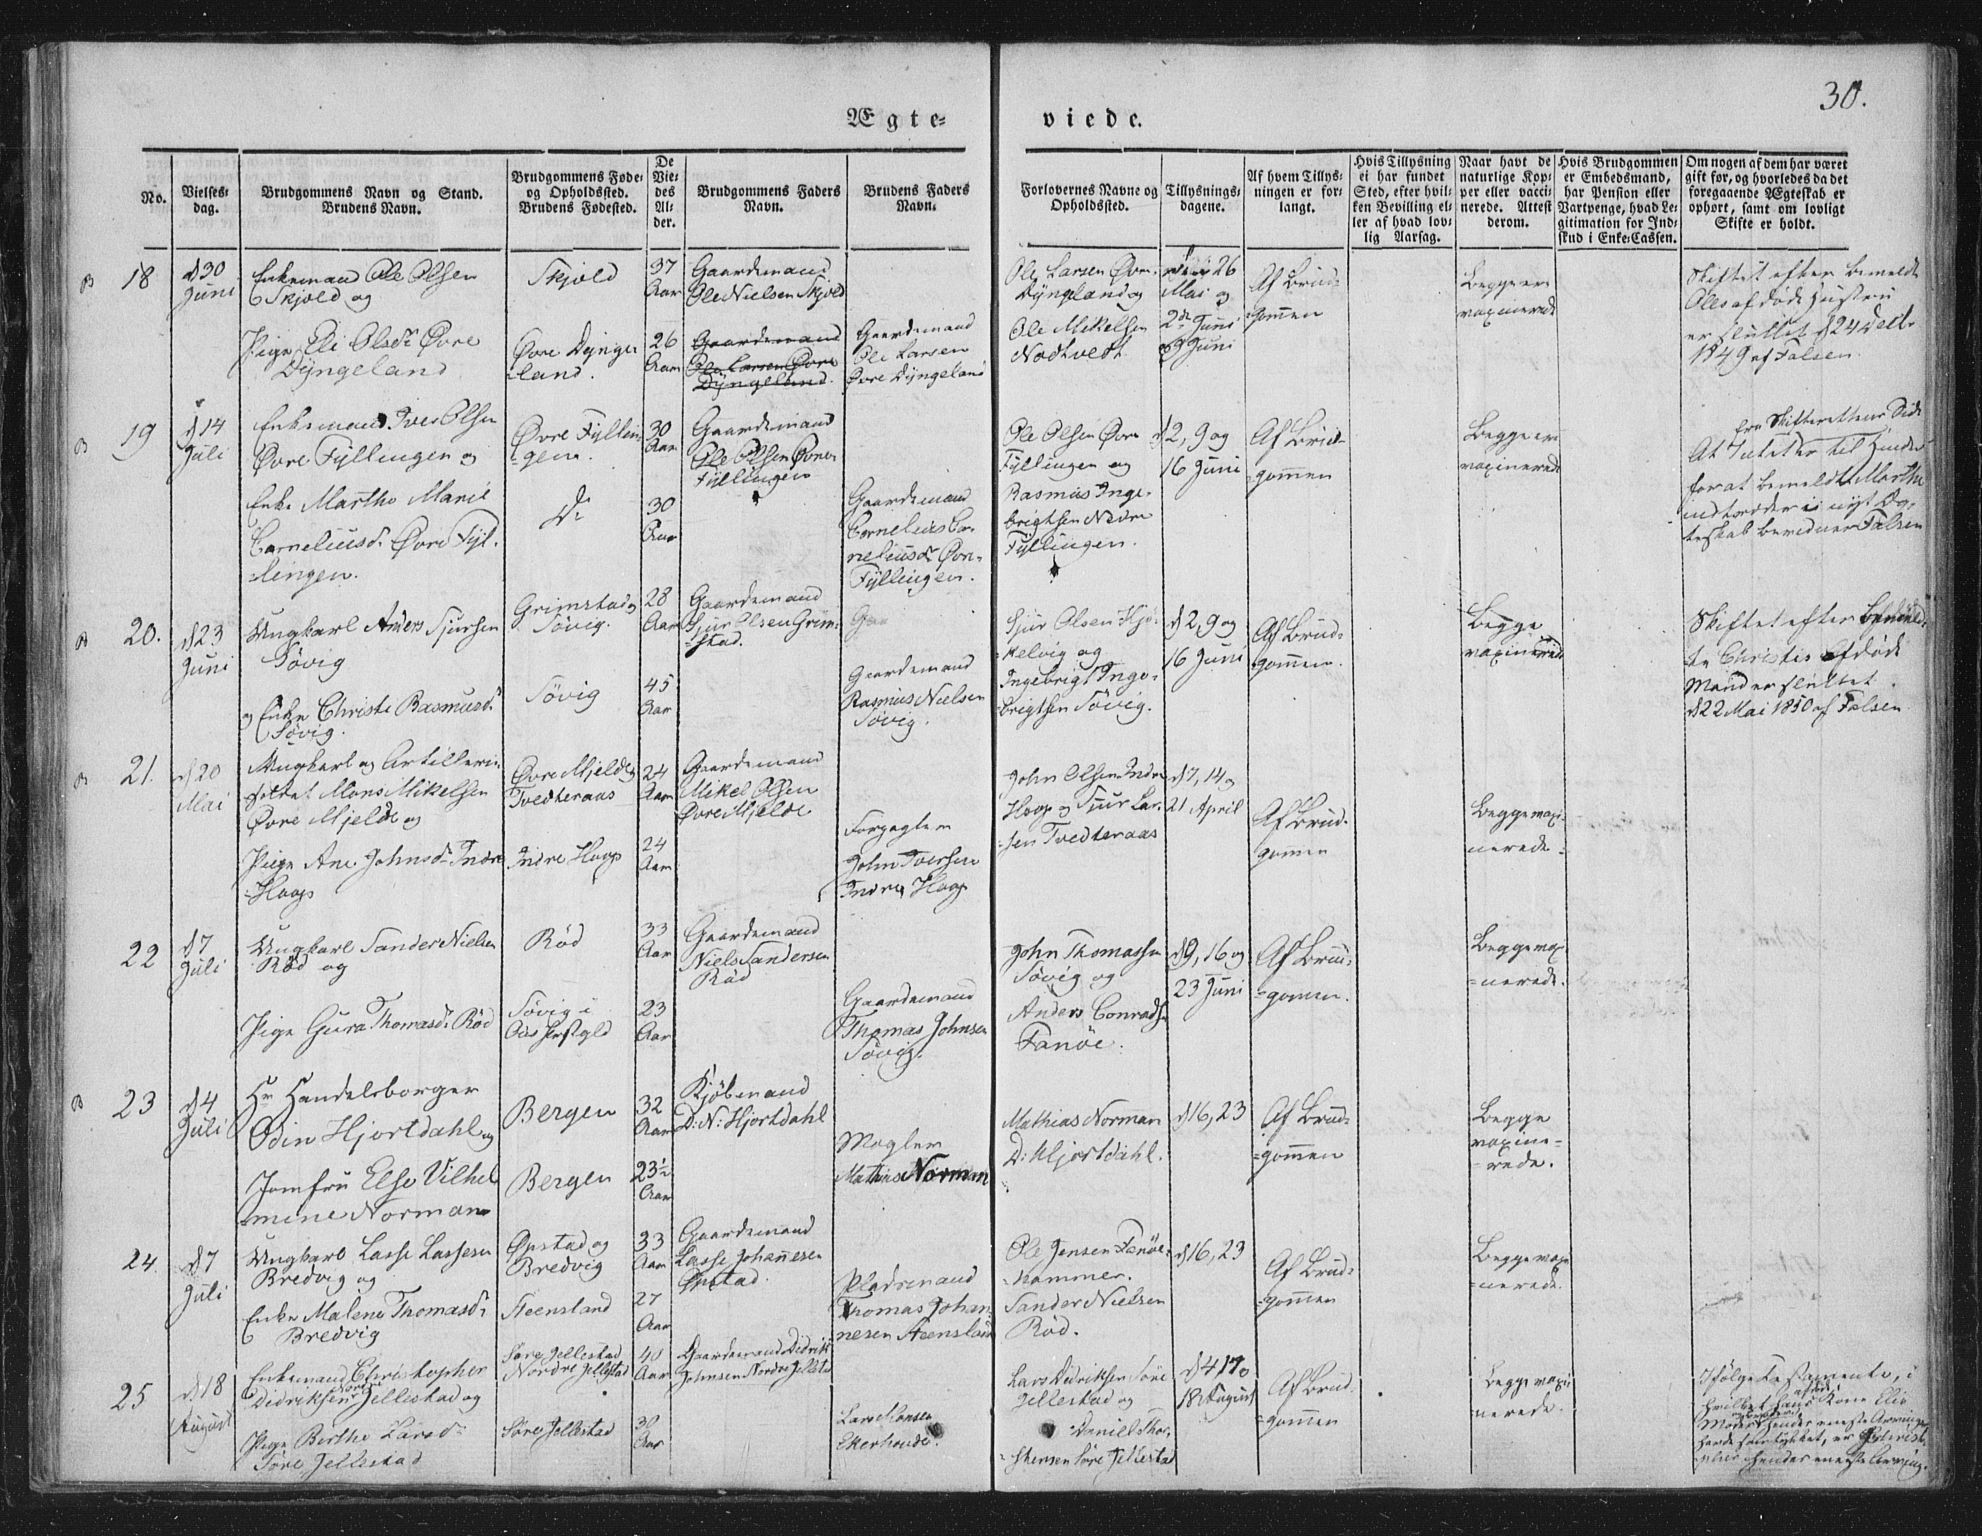 30.
Ægte-
viede.
No.
Vielses-
dag.
Brudgommens Navn og Stand.
Brudens Navn.
Brudgommens Føde-
og Opholdssted.
Brudens Fødested.
De
Vie-
des
Al-
der.
Brudgommens Faders
Navn.
Brudens Faders
Navn.
Forlovernes Navne og
Opholdssted.
Tillysnings-
dagene.
Af hvem Tillys-
ningen er for-
langt.
Hvis Tillysning
ei har fundet
Sted, efter hvil-
ken Bevilling el-
ler af hvad lov-
lig Aarsag.
Naar havt de
naturlige Kop-
per eller vacci-
nerede. Attest
derom.
Hvis Brudgommen
er Embedsmand,
har Pension eller
Vartpenge, hvad Le-
gitimation for Ind-
skud i Enke-Cassen.
Om nogen af dem har været
gift før, og hvorledes da det
foregaaende Ægteskab er
ophørt, samt om lovligt
Skifte er holdt.
B 18
d 30
Juni
Enkemand Ole Olsen
Skjold og
Pige Eli Olsd. Øvre
Dyngeland
Skjold
Øvre Dynge
-land.
37
Aar
26
Aar
Gaardemand
Ole Nielsen Skjold
Gaardemand
Ole Larsen Øvre
Dyngeland.
Gaardemand
Ole Larsen
Øvre Dyngeland
Ole Larsen Øvre
Dyngeland og
Ole Mikelsen
Nodtvedt
26
Mai og
2de Juni
9 Juni
Af Brud-
gommen
Begge ere
vaxinerede
Skiftet efter bemeldte
Oles afdøde Hustru
er sluttet d 24 Decbr
1849 af Falsen.
B 19
d 14
Juli
Enkemand Iver Olsen
Øvre Fyllingen og
Enke Marthe Marie
Corneliusd. Øvre Fyl-
lingen.
Øvre Fyllin
-gen.
Do
30
Aar
30
Aar
Gaardemand
Ole Olsen Øvre
Fyllingen
Gaardemand
Cornelius Cor
neliusd. Øvre
Fyllingen.
Ole Olsen Øvre
Fyllingen og
Rasmus Inge-
brigtsen Nedre
Fyllingen.
d 2, 9 og
16 Juni
Af Brud-
gommen
Begge ere
vaxinerede
fra Skifterettens Side
At Intet er til Hinder
for at bemeldte Marthe
indtræder i nyt Æg-
teskab bevidner Falsen
B 20.
d 23
Juni
Ungkarl Anders Sjursen
Søvig
og Enke Christi Rasmusd.
Søvig.
Grimstad og
Søvig.
Søvig
28
Aar
45
Aar
Gaardemand
Sjur Olsen Grim-
stad.
Gaardemand
Rasmus Nielsen
Søvig.
Sjur Olsen Hjø-
kelvig og
Ingebrigt Inge-
brigtsen Søvig.
d 2, 9 og
16 Juni
Af Brud-
gommen.
Begge
vaxinerede
Skiftet efter bemeld-
te Christis afdøde
Mand er sluttet
d 22 Mai 1850 af Falsen.
B 21.
d 20
Mai
Ungkarl og Artilleri-
soldat Mons Mikelsen
Øvre Mjelde og
Pige Ane Johnsd. Indre
Hoop
Øvre Mjelde og
Tvedteraas
Indre Hoop
24
Aar
24
Aar
Gaardemand
Mikel Olsen
Øvre Mjelde
Forpagter
John Iversen
Indre Hoop
John Olsen Indre
Hoop og Sjur Lar-
sen Tvedteraas
d 7, 14 og
21 April
Af Brud-
gommen
Begge vaxi-
nerede.
22
d 7
Juli
Ungkarl Sander Nielsen
Rød og
Pige Gura Thomasd. Rød
Rød
Søvig i
Oos Prstgld
33
Aar
23
Aar
Gaardemand
Niels Sandersen
Rød
Gaardemand
Thomas Johnsen
Søvig.
John Thomassen
Søvig og
Anders Conradsn
Fanöe.
d 9, 16 og
23 Juni
Af Brud-
-gommen.
Begge vax
-nerede.
B 23
d 4
Juli
Hr Handelsborger
Odin Hjortdahl og
Jomfru Else Vilhel
-mine Norman
Bergen
Bergen
32
Aar
23½
Aar
Kjøbmand
D: N: Hjortdahl
Mægler
Mathias Norman
Mathias Norman
D: Hjortdahl.
d 16, 23
Af Brud-
-gommen
Begge
vaxine-
-rede.
24.
d 7
Juli
Ungkarl Lasse Lassesen
Bredvig og
Enke Malene Thomasd.
Bredvig
Opstad og
Bredvig
Steensland
33
Aar
27
Aar
Gaardemand
Lasse Johannesen
Opstad.
Pladsemand
Thomas Johan
nesen Steensland
Ole Jensen Fanöe-
hammer.
Sander Nielsen
Rød.
d 16, 23
Af Brud-
-gommen
Begge vaxi
-nerede.
25
d 18
August
Enkemand Christopher
Didriksen Nordre Jellestad og
Pige Berthe Larsd.
Søre Jellestad
Søre Jellestad
Nordre Jellestad
Søre Jellestad
40
Aar
30
Aar
Gaardemand Didrik
Johnsen Nordre Jellestad
Lars Monsen
Ekerhovde.
Lars Didriksen Søre
Jellestad og
Daniel Thor-
stensen Søre Jellestad
d 4 11 og
18 August
Af Brud-
gommen
Begge vaxi
nerede.
Ifølge Testamente, i
hvilket hans afdøde Kone Elis
Moder hendes eneste Arving
havde samtykket, er Christo-
pher hendes eneste Arving.